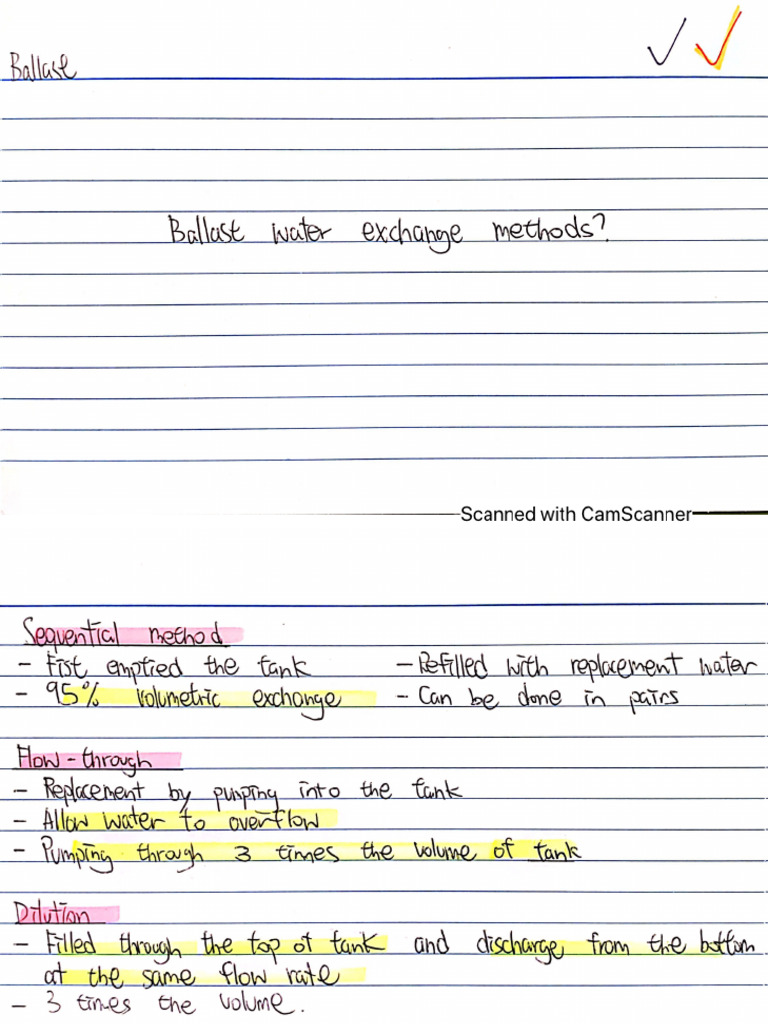 Ballast
Ballast water exchange methods?
Scanned with CamScanner
Sequential method
- Fist emptied the tank - Refilled with replacement water
- 95% volumetric exchange - Can be done in pairs
Flow-through
- Replacement by pumping into the tank
- Allow water to overflow
- Pumping through 3 times the volume of tank
Dilution
- Filled through the top of tank and discharge from the bottom
at the same flow rate
- 3 times the volume.